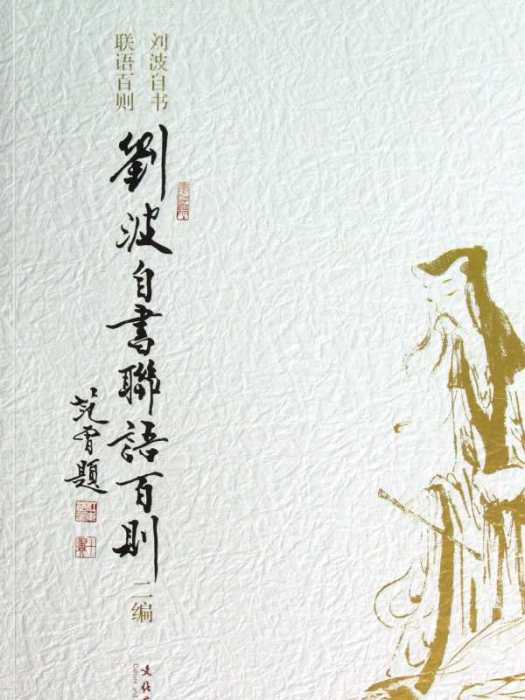 刘波自书
联语百则
劉波自書聯語百則
二编
范曾題